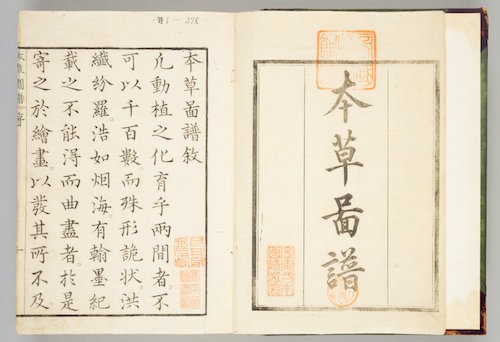 本草啚譜
本草啚譜敘
凢動植之化育乎兩間者。不
可以千百數。而殊形詭状。洪
纎紛羅。浩如烟海。有翰墨紀
載之不能淂而曲盡者。於是
寄之於繪畫。以發其所不及